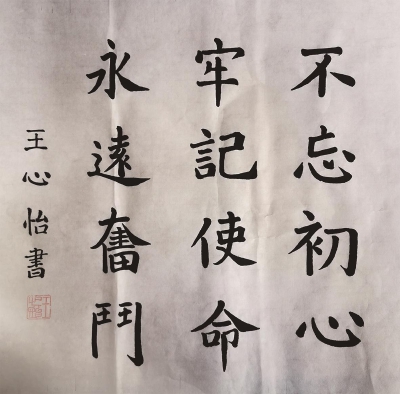 不忘初心
牢記使命
永遠奮鬥
王心怡書